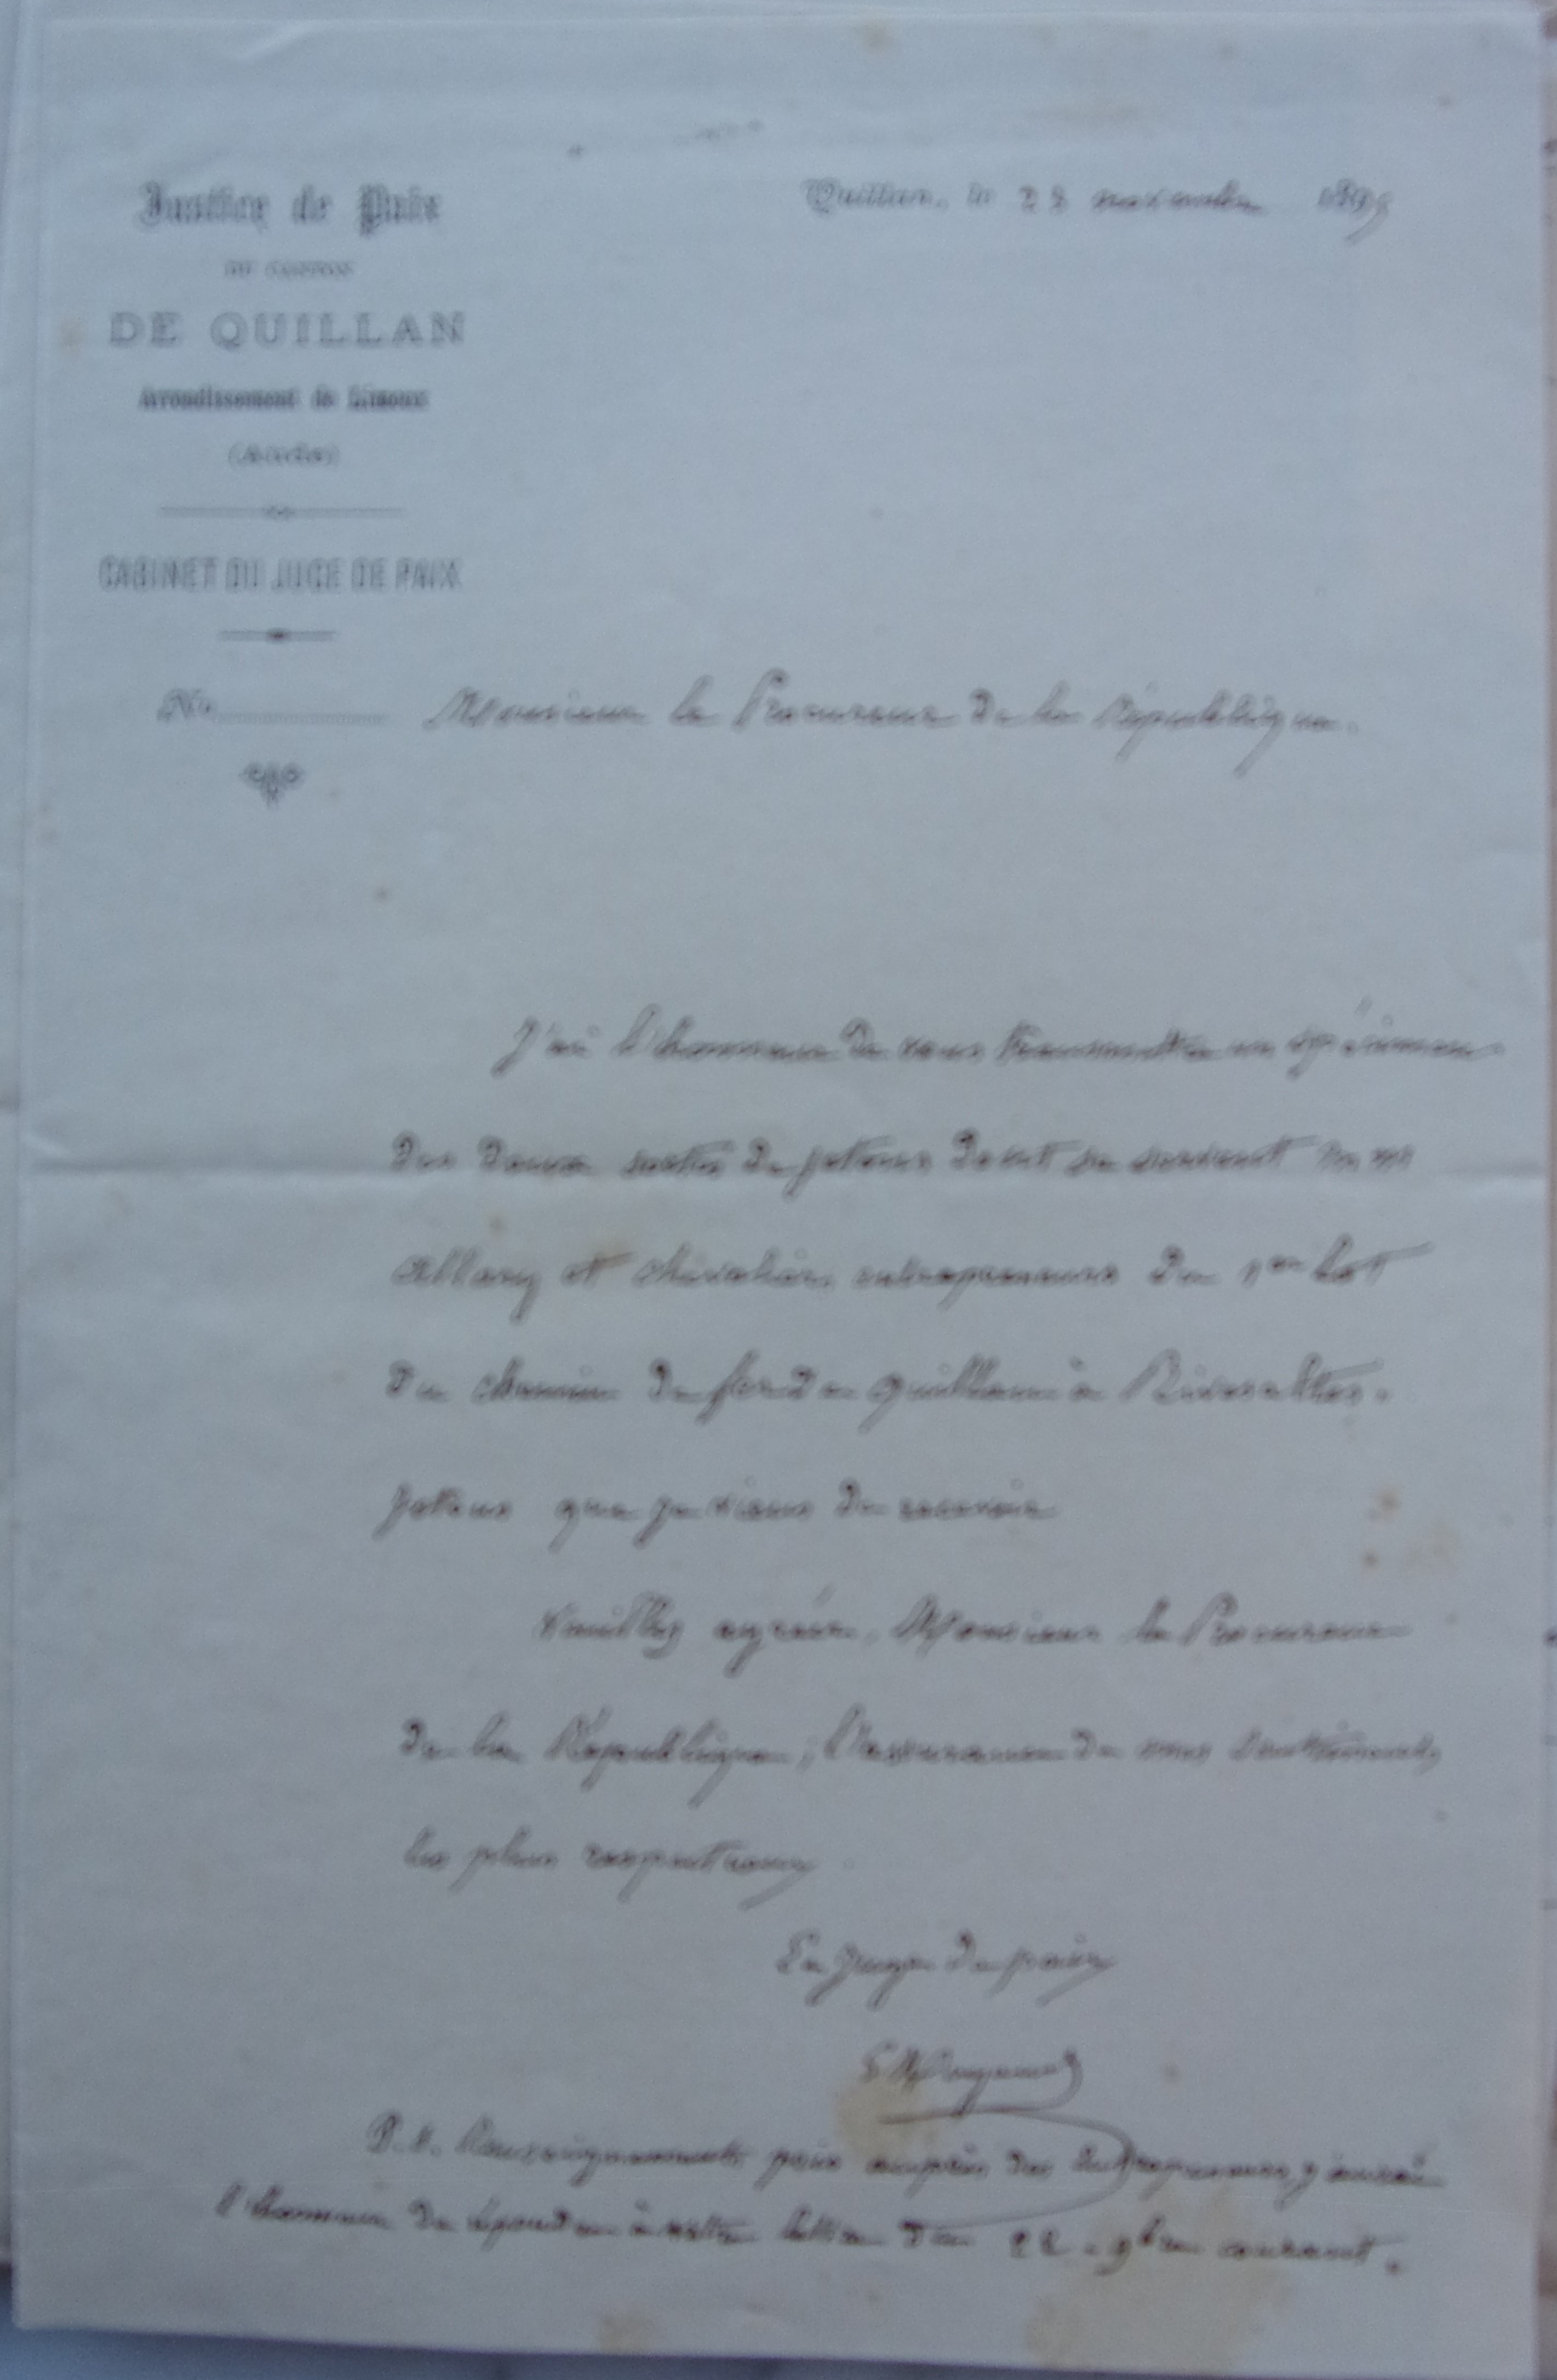 Justice de Paix
DU CANTON
DE QUILLAN
Arrondissement de Limoux
(Aude)
CABINET DU JUGE DE PAIX
No
Quillan, le 28 novembre 1895
Monsieur le Procureur de la République.
J'ai l'honneur de vous transmettre un spécimen
des deux sortes de jetons dont se servent MM
Allary et Chevalier, entrepreneurs du 1er lot
du chemin de fer de Quillan à Rivesaltes.
Jetons que je viens de recevoir
Veuillez agréer, Monsieur le Procureur
de la République, l'assurance de mes sentiments
les plus respectueux
Le Juge de paix
P.S. Renseignements pris auprès des entrepreneurs, j'aurai
l'honneur de répondre à votre lettre du 22 9bre courant.